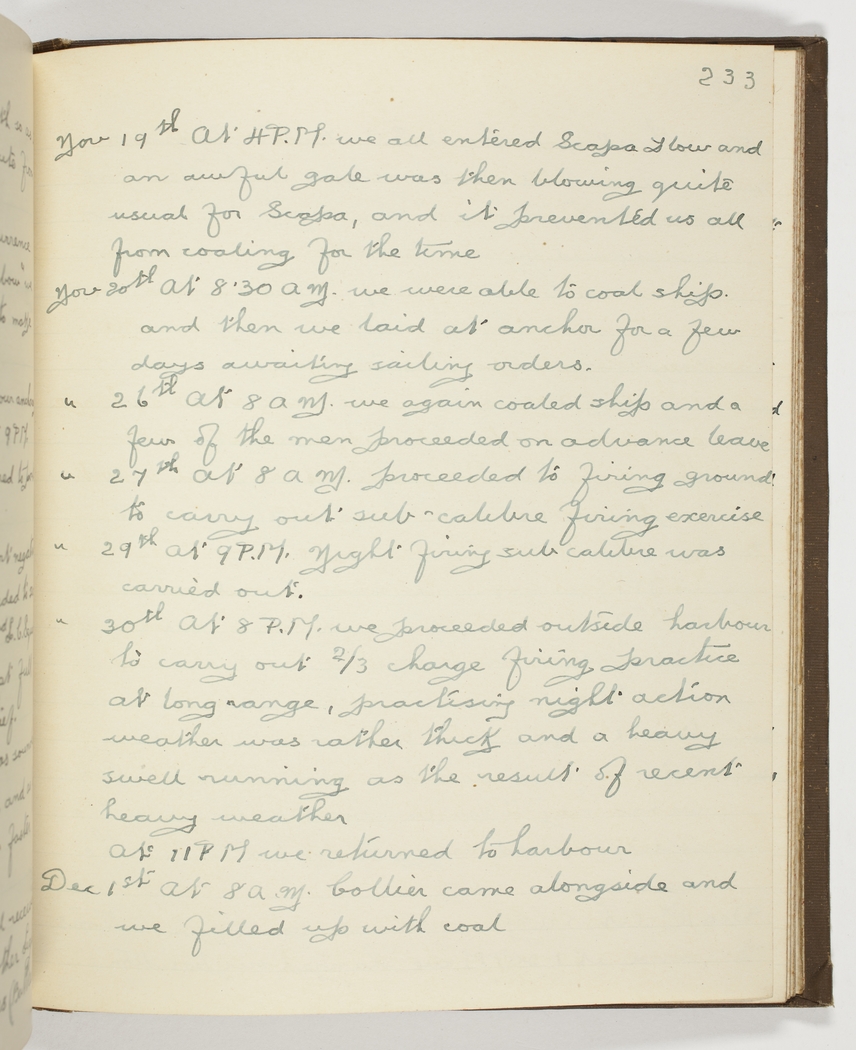 233
Nov 19th At 4 P.M. we all entered Scapa Flow and
an awful gale was then blowing quite
usual for Scapa, and it prevented us all
from coaling for the time
Nov 20th At 8.30 A.M. we were able to coal ship.
and then we laid at anchor for a few
days awaiting sailing orders.
" 26th At 8 A.M. we again coaled ship and a
few of the men proceeded on advance leave
" 27th At 8 A.M. proceeded to firing ground
to carry out sub-calibre firing exercise
" 29th At 9 P.M. Night firing sub calibre was
carried out.
" 30th At 8 P.M. we proceeded outside harbour
to carry out 2/3 charge firing practice
at long range, practising night action
weather was rather thick and a heavy
swell running as the result of recent
heavy weather
At 11 P M we returned to harbour
Dec 1st At 8 A.M. Collier came alongside and
we filled up with coal